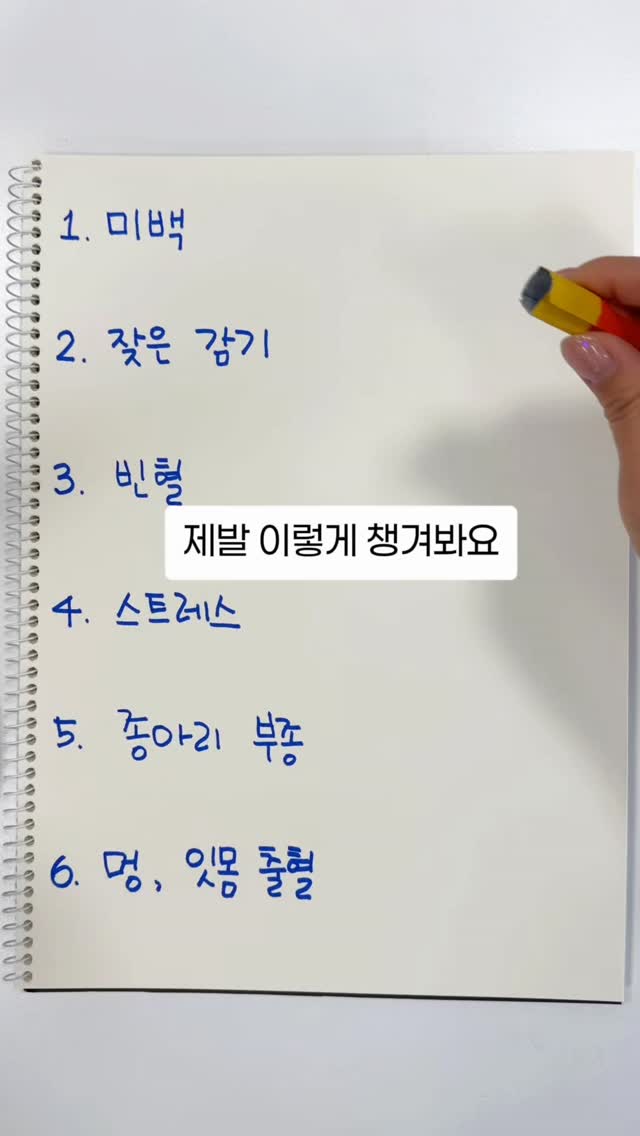 1. 미백
2. 잦은 감기
3. 빈혈
제발 이렇게 챙겨봐요
4. 스트레스
5. 종아리 부종
6. 멍, 잇몸 출혈